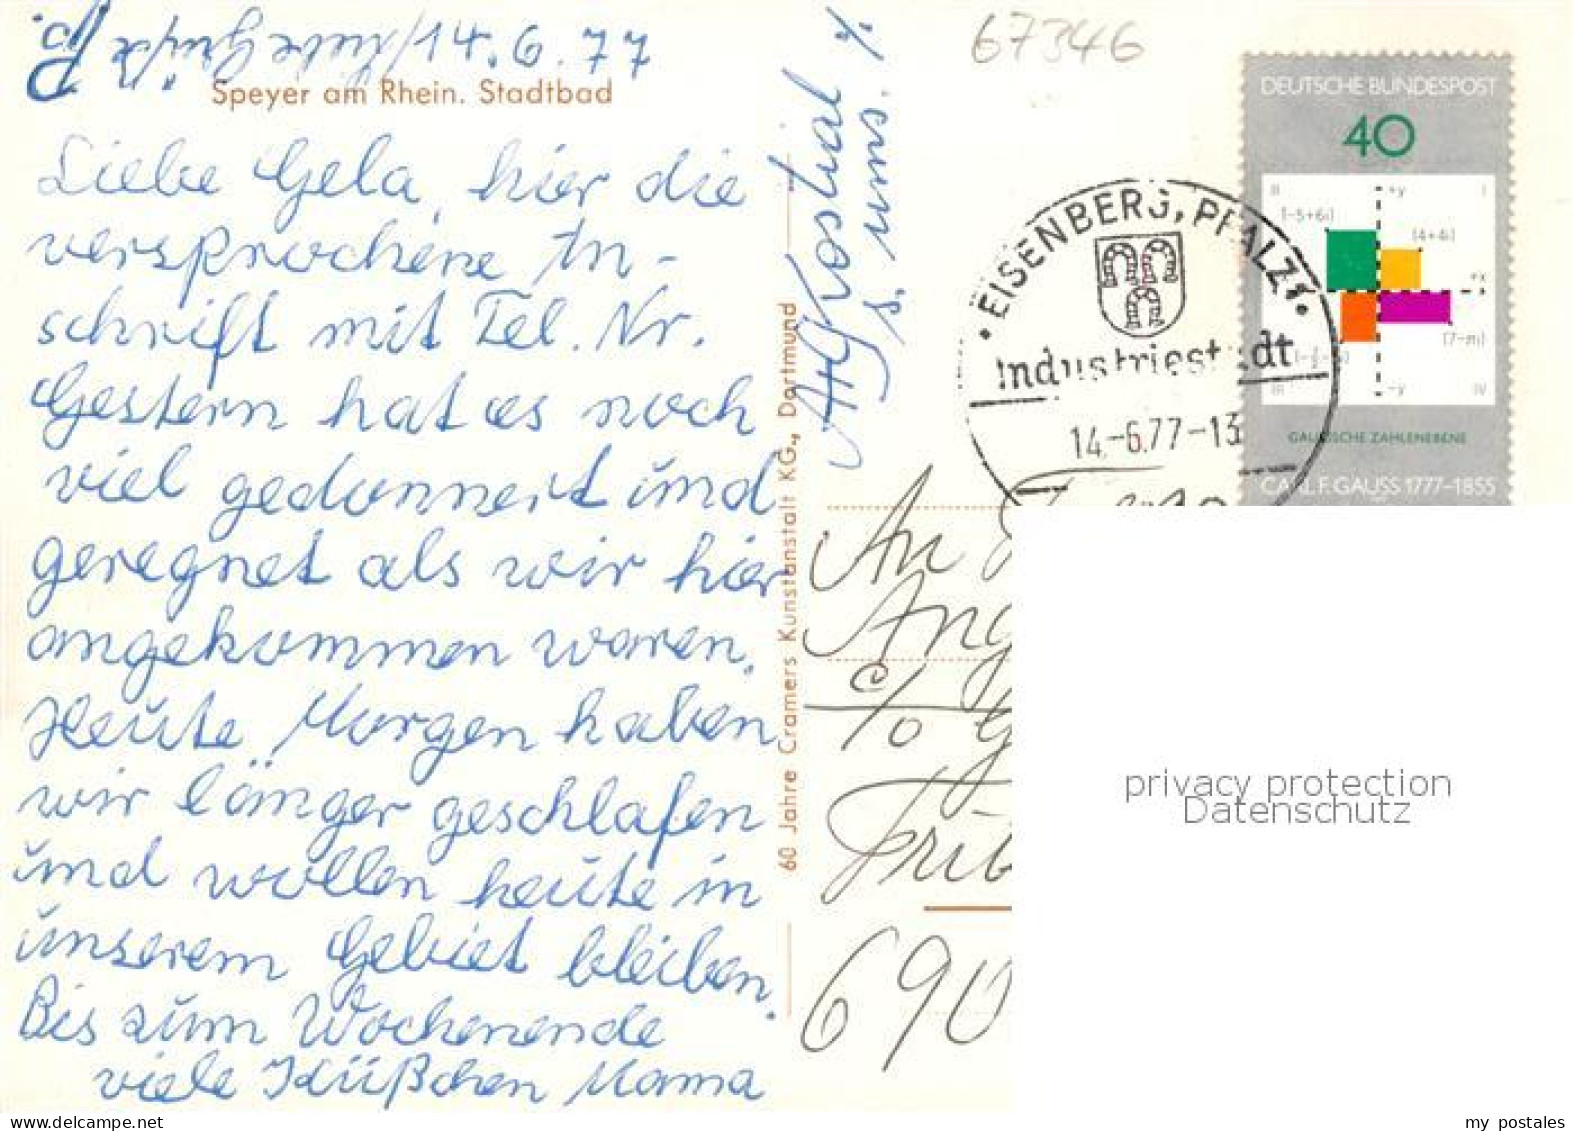 14.6.77
67346
Speyer am Rhein. Stadtbad
Liebe Gela, hier die
versprochene An-
schrift mit Tel. Nr.
Gestern hat es noch
viel gedonnert und
geregnet als wir hier
angekommen waren.
Heute Morgen haben
wir länger geschlafen
und wollen heute in
unserem Gebiet bleiben.
Bis zum Wochenende
viele Küßchen Mama
60 Jahre Cramers Kunstanstalt KG., Dortmund
DEUTSCHE BUNDESPOST
40
II +y I
(-5+6i)
(4+4i)
+x
(7-πi)
III -y IV
GAUSSSCHE ZAHLENEBENE
CARL F. GAUSS 1777-1855
EISENBERG, PFALZ 1
Industriestadt
14.-6.77-13
An
Ang
c/o
690
privacy protection
Datenschutz
my postales
www.delcampe.net